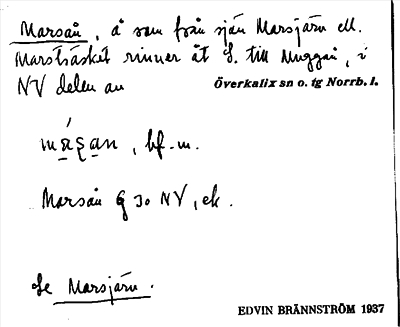 Marsån, å som från sjön Marsjärv ell.
Marsträsket rinner åt S. till Muggån, i
NV delen av
Överkalix sn o. tg Norrb. l.
bf. m.
Marsån G 30 NV, ek.
Se Marsjärv.
EDVIN BRÄNNSTRÖM 1937